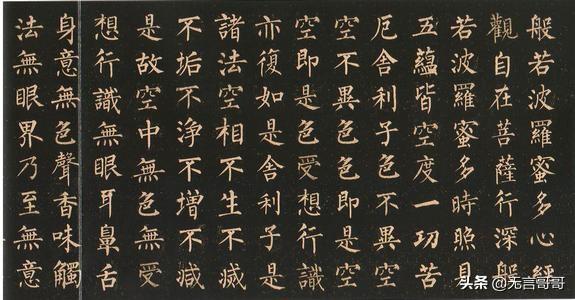 般若波羅蜜多心經
觀自在菩薩行深般
若波羅蜜多時照見
五蘊皆空度一切苦
厄舍利子色不異空
空不異色色即是空
空即是色受想行識
亦復如是舍利子是
諸法空相不生不滅
不垢不淨不增不減
是故空中無色無受
想行識無眼耳鼻舌
身意無色聲香味觸
法無眼界乃至無意
头条 @无言哥哥